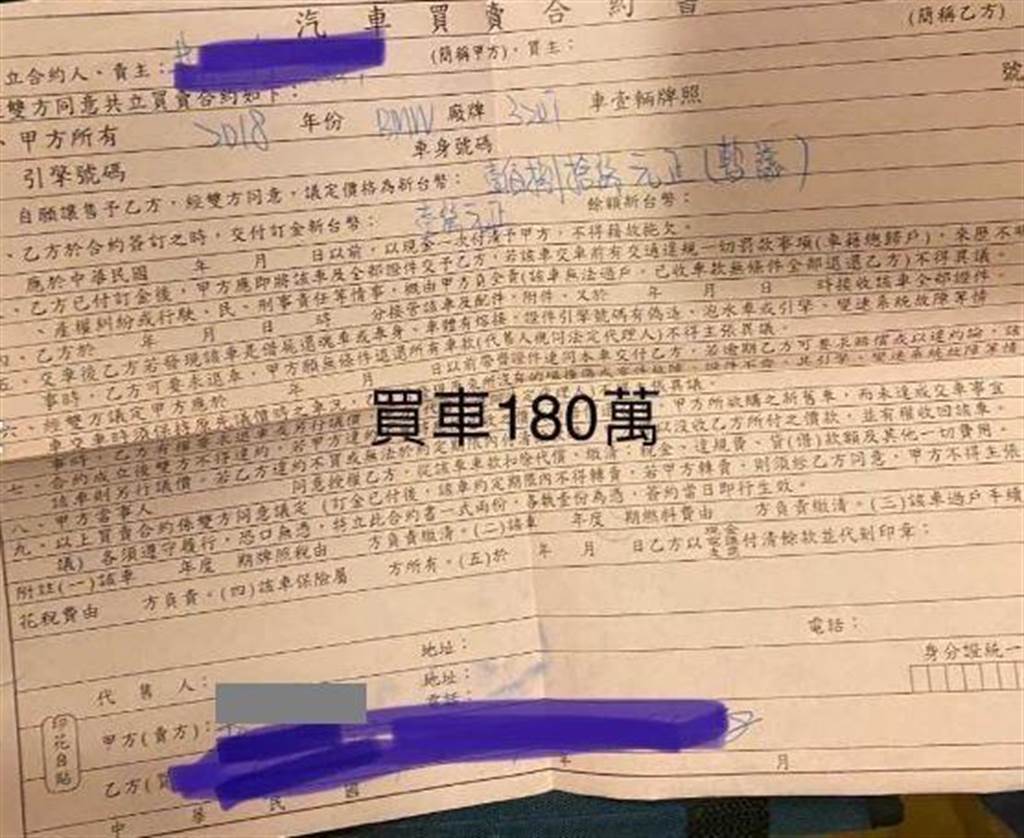 汽車買賣合約書
立合約人，賣主：
(簡稱甲方)，買主：
(簡稱乙方)
雙方同意共立買賣合約如下：
、甲方所有 2018 年份 BMW 廠牌 320i 車壹輛牌照 號
引擎號碼 車身號碼
自願讓售予乙方，經雙方同意，議定價格為新台幣：壹佰捌拾萬元正
、乙方於合約簽訂之時，交付訂金新台幣：壹萬元正 餘額新台幣：
應於中華民國 年 月 日以前，以現金一次付清予甲方，不得藉故拖欠。
、乙方已付訂金後，甲方應即將該車及全部證件交予乙方，若該車交車前有交通違規一切罰款事項(車籍總歸戶)，來歷不明
、產權糾紛或行駛、民、刑事責任等情事，概由甲方負全責(該車無法過戶，已收車款無條件全部退還乙方)不得異議。
四、乙方於 年 月 日 時 分接管該車及配件、附件，又於 年 月 日 時接收該車全部證件。
五、交車後乙方若發現該車是借屍還魂車或車身、車體有熔接，證件引擎號碼有偽造、泡水車或引擎、變速系統故障等情
事時，乙方可要求退車，甲方願無條件退還所有車款(代售人視同法定代理人)不得主張異議。
六、經雙方議定甲方應於 年 月 日以前帶齊證件連同本車交付乙方，若逾期乙方可要求賠償或以違約論，
買車180萬
七、合約成立後雙方不得違約，
該車則另行議價。若乙方違約不買或無法於約定期
八、甲方當事人 同意授權乙方，從該車車款扣除代償、繳清：稅金、違規費、貸(借)款額及其他一切費用。
九、以上買賣合約係雙方同意議定 (訂金已付後，該車約定期限內不得轉賣，若甲方轉賣，則須經乙方同意，甲方不得主張
議) 各須遵守履行，恐口無憑，特立此合約書一式兩份，各執壹份為憑，簽約當日即行生效。
附註(一)該車 年度 期牌照稅由 方負責繳清。(二)該車 年度 期燃料費由 方負責繳清。(三)該車過戶手續
花稅費由 方負責。(四)該車保險屬 方所有。(五)於 年 月 日乙方以 付清餘款並代刻印章：
地址： 電話：
代售人： 地址： 身分證統一
電話：
印花自貼
甲方(賣方)：
乙方(買
中華民國 年 月